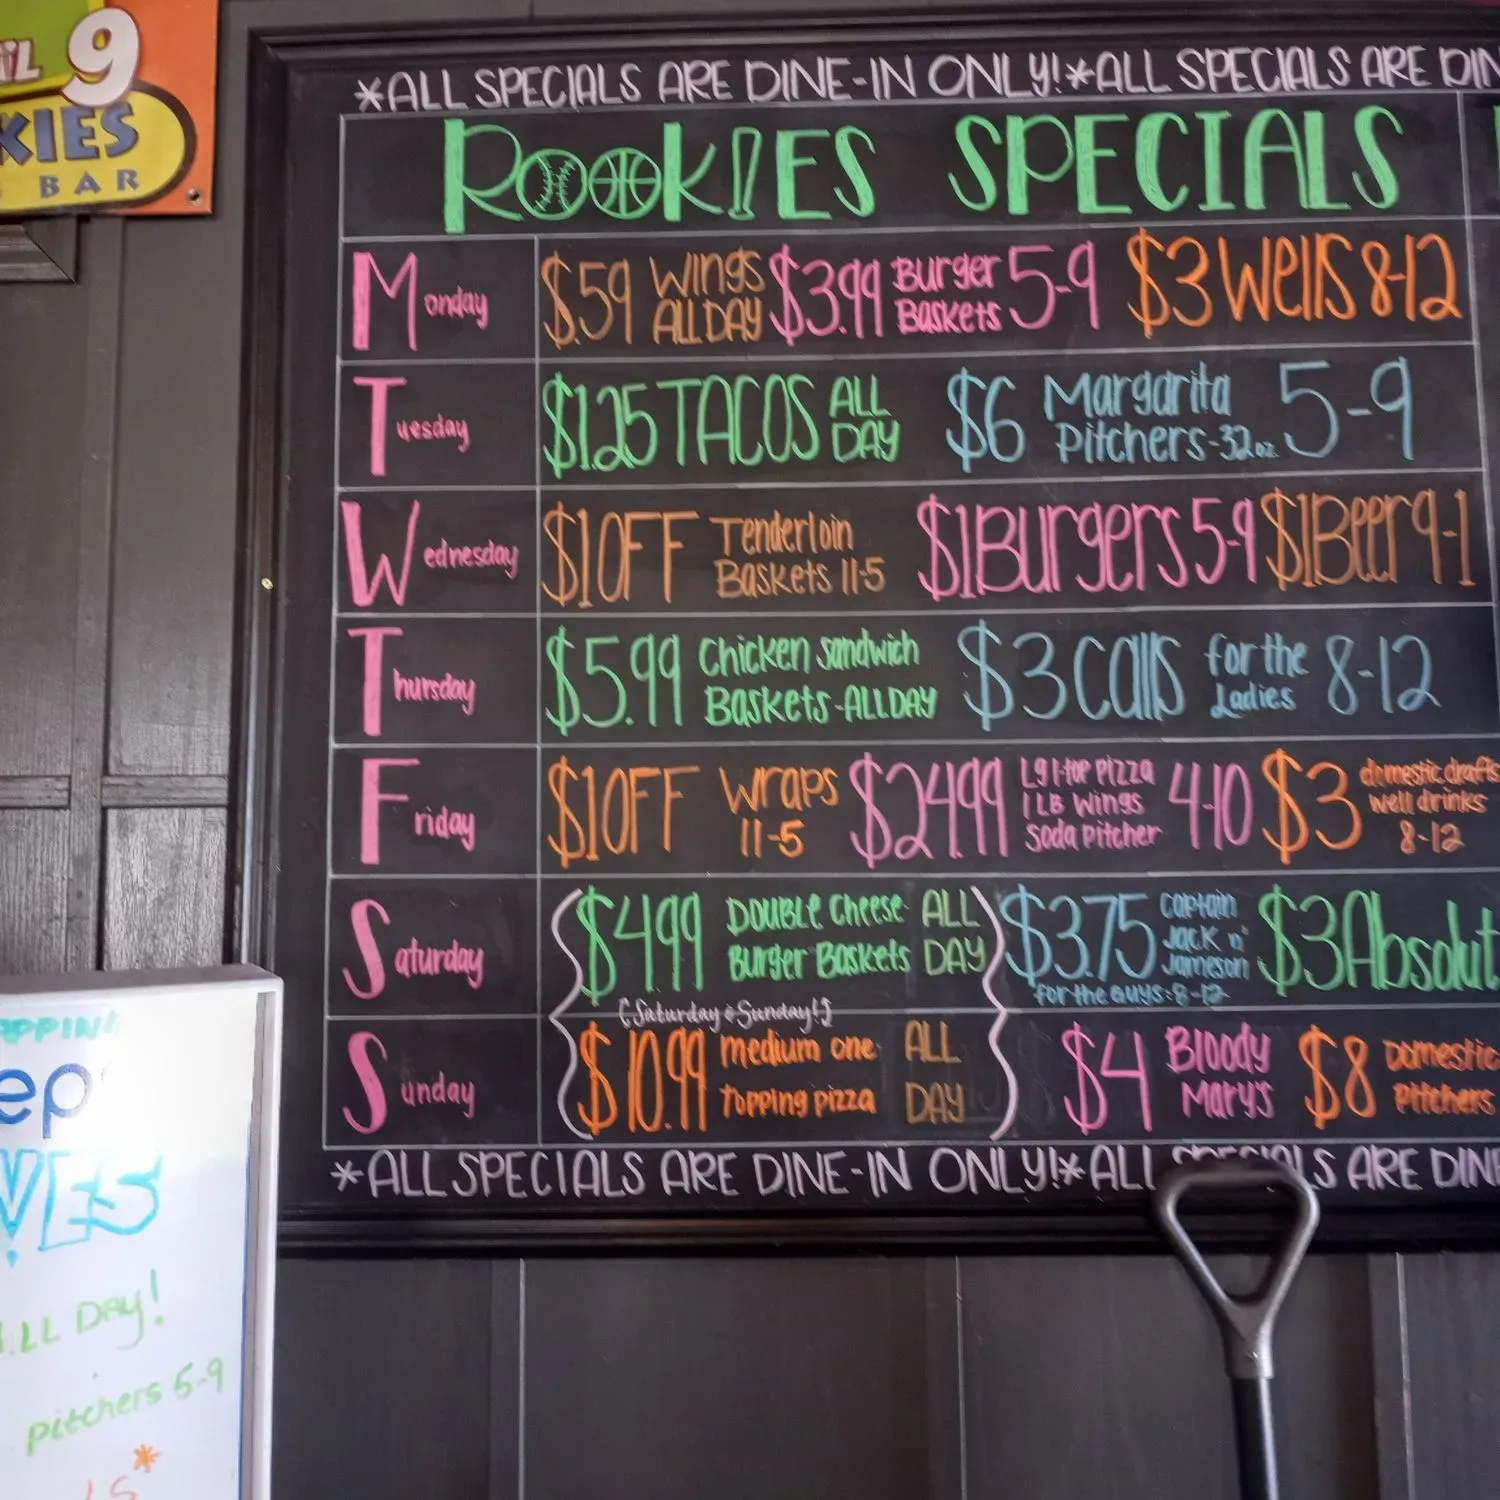 9
KIES
BAR
*ALL SPECIALS ARE DINE-IN ONLY!*ALL SPECIALS ARE DIN
ROOKIES SPECIALS
Monday $.59 WINGS ALL DAY $3.99 Burger Baskets 5-9 $3 Wells 8-12
Tuesday $1.25 TACOS ALL DAY $6 Margarita Pitchers-32oz. 5-9
Wednesday $1 OFF Tenderloin Baskets 11-5 $1 Burgers 5-9 $1 Beer 9-1
Thursday $5.99 Chicken Sandwich Baskets-ALL DAY $3 Calls for the Ladies 8-12
Friday $1 OFF Wraps 11-5 $24.99 Lg 1-top Pizza 1 LB Wings Soda Pitcher 4-10 $3 domestic drafts well drinks 8-12
Saturday $4.99 Double Cheese Burger Baskets ALL DAY $3.75 Captain Jack n' Jameson for the Guys: 8-12 $3 Absolut
{Saturday & Sunday!}
Sunday $10.99 Medium one Topping pizza ALL DAY $4 Bloody Mary's $8 Domestic Pitchers
*ALL SPECIALS ARE DINE-IN ONLY!*ALL SPECIALS ARE DINE
OPPING
ep
VES
ALL DAY!
pitchers 5-9